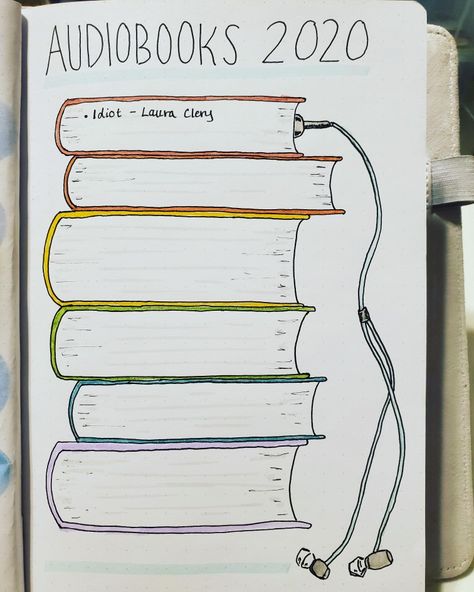 AUDIOBOOKS 2020
• Idiot - Laura Clery